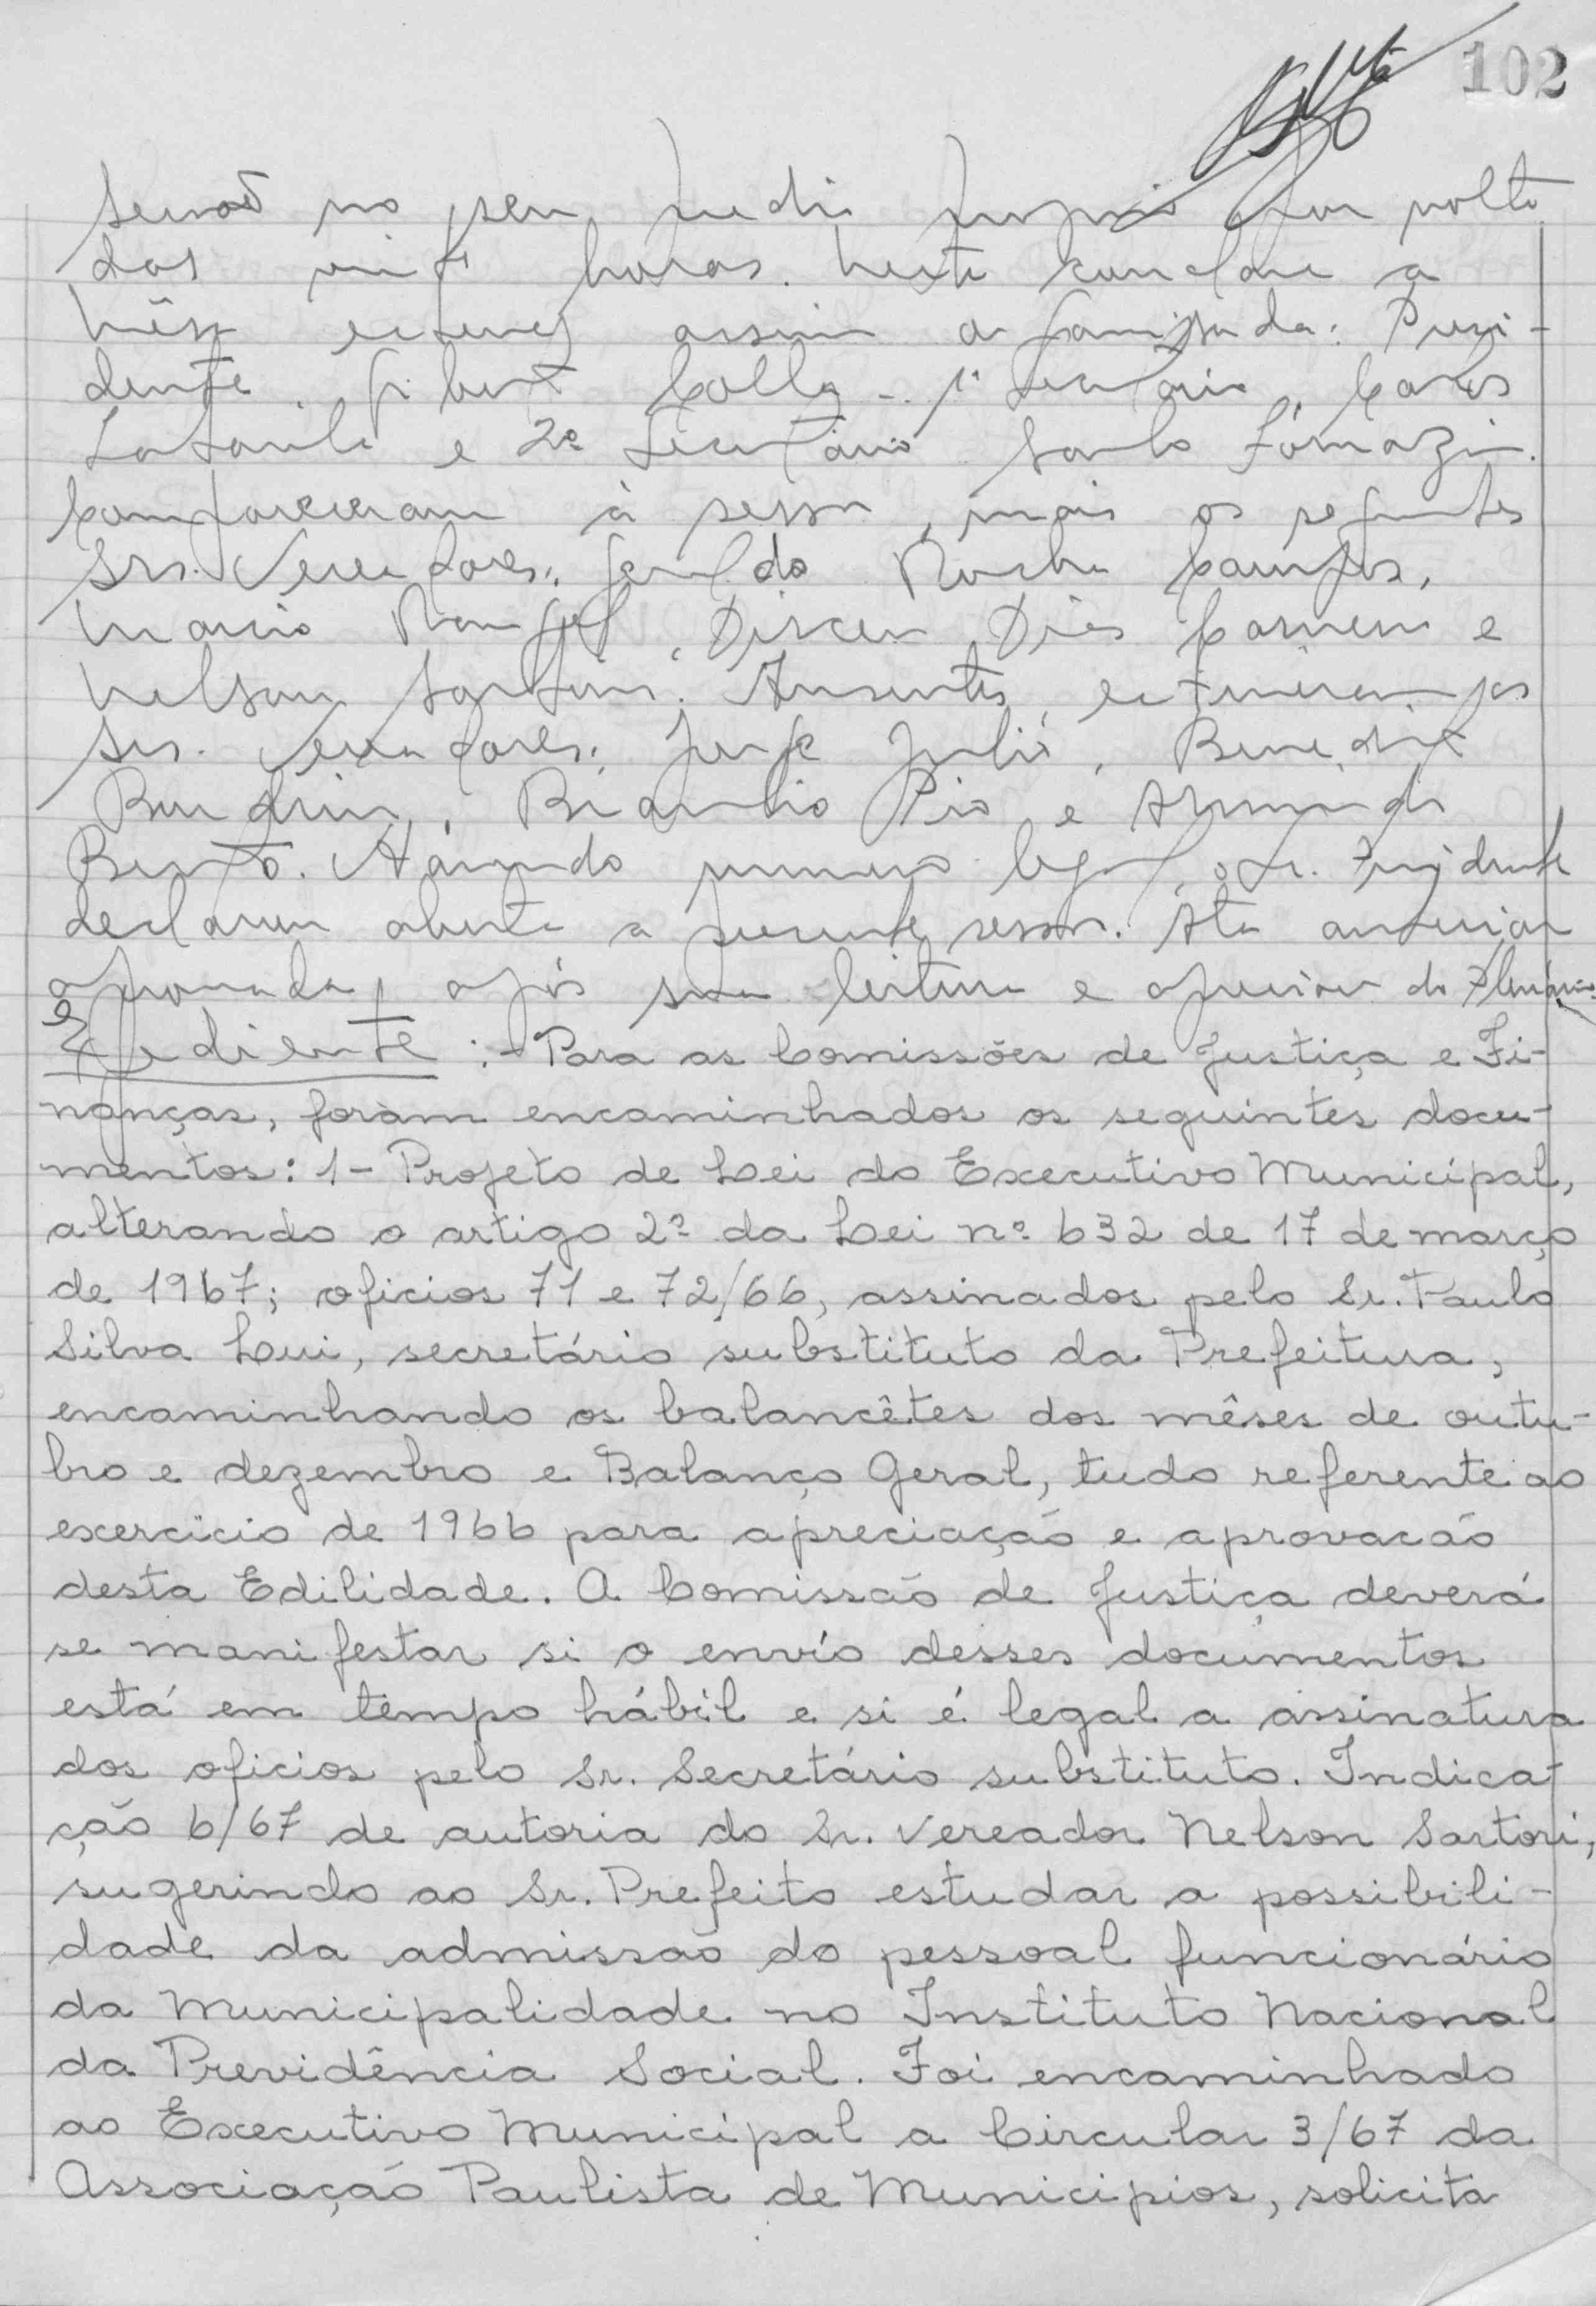 102
no seu predio proprio por volta
das vinte horas. Neste conclave a
Mêsa esteve assim organisada: Presi-
dente, Colla - 1º Secretário,
e 2º Secretário Santo Fornazin.
Compareceram à sessão, mais os seguintes
Srs. Vereadores: Geraldo Rocha Campos,
Marcio Rangel, Dirceu Dias Carneiro e
Nelson Sartori. Ausentes, estiveram os
Srs. Vereadores: Jorge Julio, Benedito
Bendrin, Braulio Pio e
Bento. Havendo numero legal, o Sr. Presidente
declarou aberta a presente sessão. Ata anterior
aprovada, após sua leitura e do Plenário
Expediente :- Para as Comissões de Justiça e Fi-
nanças, foram encaminhados os seguintes docu-
mentos: 1- Projeto de Lei do Executivo Municipal,
alterando o artigo 2º da Lei nº 632 de 17 de março
de 1967; oficios 71 e 72/66, assinados pelo Sr. Paulo
Silva Lui, secretário substituto da Prefeitura,
encaminhando os balancêtes dos mêses de outu-
bro e dezembro e Balanço Geral, tudo referente ao
exercício de 1966 para apreciação e aprovacão
desta Edilidade. A Comissão de Justiça deverá
se manifestar si o envío desses documentos
está em tempo hábil e si é legal a assinatura
dos oficios pelo Sr. Secretário substituto. Indica-
ção 6/67 de autoria do Sr. Vereador Nelson Sartori,
sugerindo ao Sr. Prefeito estudar a possibili-
dade da admissão do pessoal funcionário
da Municipalidade no Instituto Nacional
da Previdência Social. Foi encaminhado
ao Executivo Municipal a Circular 3/67 da
Associação Paulista de Municipios, solicita